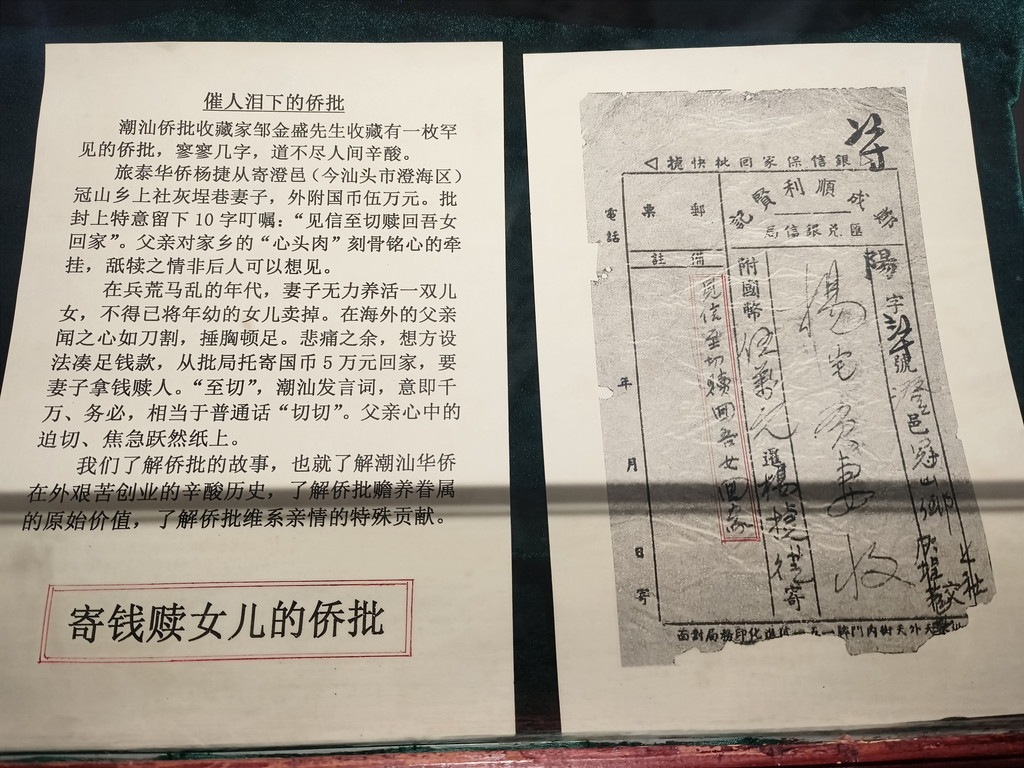 催人泪下的侨批
潮汕侨批收藏家邹金盛先生收藏有一枚罕
见的侨批，寥寥几字，道不尽人间辛酸。
旅泰华侨杨捷从寄澄邑（今汕头市澄海区）
冠山乡上社灰埕巷妻子，外附国币伍万元。批
封上特意留下 10 字叮嘱：“见信至切赎回吾女
回家”。父亲对家乡的“心头肉”刻骨铭心的牵
挂，舐犊之情非后人可以想见。
在兵荒马乱的年代，妻子无力养活一双儿
女，不得已将年幼的女儿卖掉。在海外的父亲
闻之心如刀割，捶胸顿足。悲痛之余，想方设
法凑足钱款，从批局托寄国币 5 万元回家，要
妻子拿钱赎人。“至切”，潮汕发言词，意即千
万、务必，相当于普通话“切切”。父亲心中的
迫切、焦急跃然纸上。
我们了解侨批的故事，也就了解潮汕华侨
在外艰苦创业的辛酸历史，了解侨批赡养眷属
的原始价值，了解侨批维系亲情的特殊贡献。
寄钱赎女儿的侨批
銀信保家回批快捷
順利
匯兌銀信局
郵票
電話
備註
陽
字
號
澄邑冠山鄉
楊宅
妻收
附國幣伍萬元
還
楊捷
寄
見信至切贖回吾女回家
年月日寄